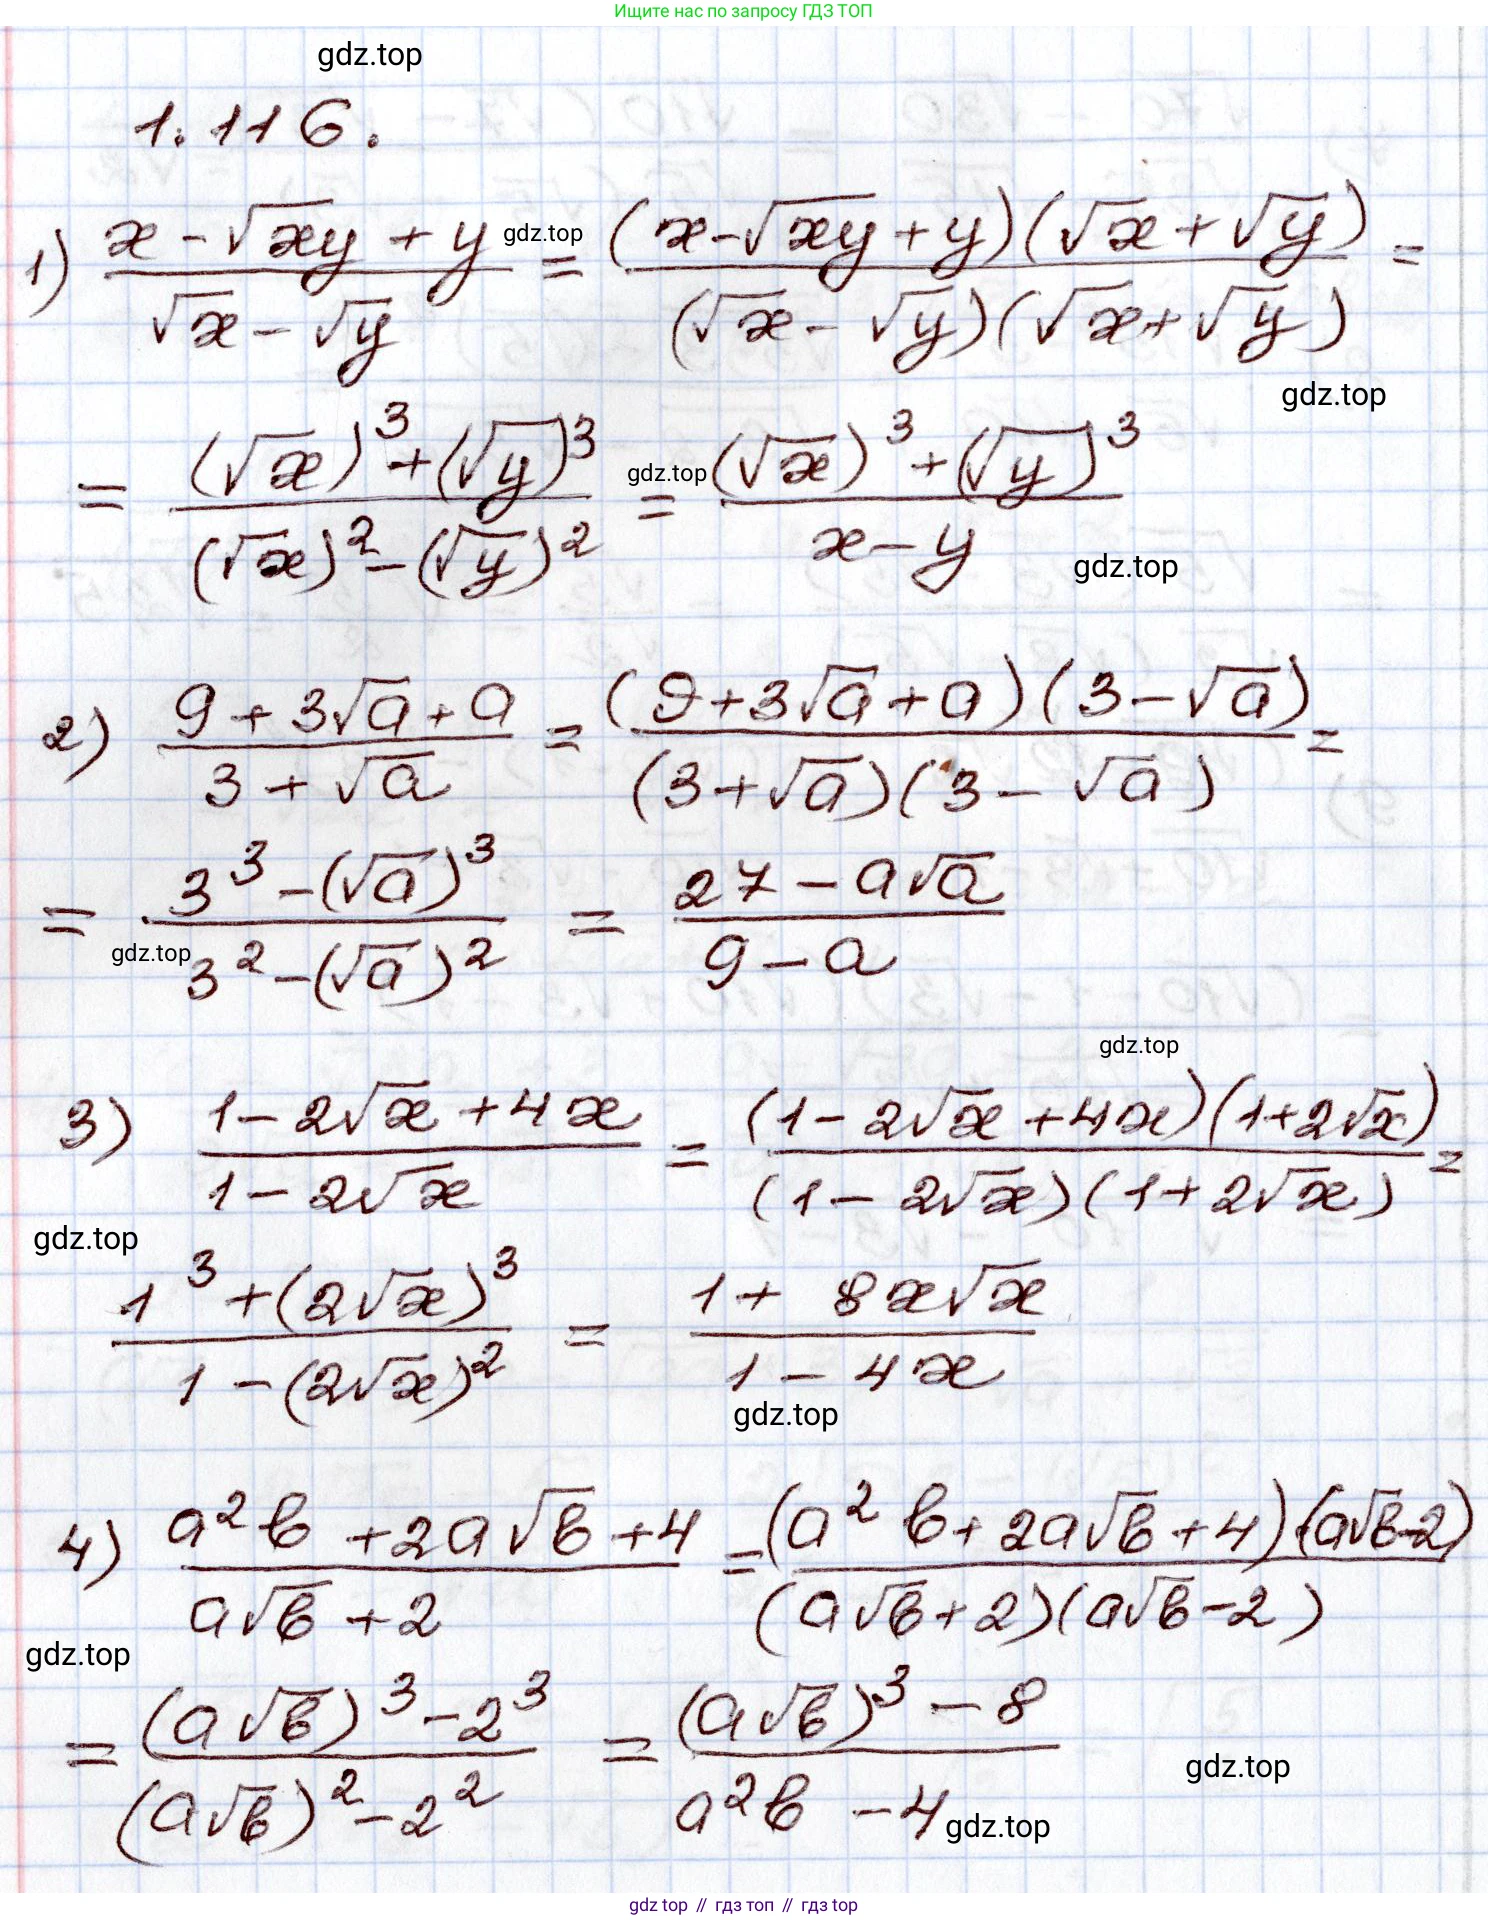 Ищите нас по запросу ГДЗ ТОП
gdz.top
1.116.
1) (x - √xy + y)/(√x - √y) = ((x - √xy + y)(√x + √y))/((√x - √y)(√x + √y)) =
gdz.top
gdz.top
= ((√x)³ + (√y)³)/((√x)² - (√y)²) = ((√x)³ + (√y)³)/(x - y)
gdz.top
gdz.top
2) (9 + 3√a + a)/(3 + √a) = ((9 + 3√a + a)(3 - √a))/((3 + √a)(3 - √a)) =
= (3³ - (√a)³)/(3² - (√a)²) = (27 - a√a)/(9 - a)
gdz.top
gdz.top
3) (1 - 2√x + 4x)/(1 - 2√x) = ((1 - 2√x + 4x)(1 + 2√x))/((1 - 2√x)(1 + 2√x)) =
gdz.top
(1³ + (2√x)³)/(1 - (2√x)²) = (1 + 8x√x)/(1 - 4x)
gdz.top
4) (a²b + 2a√b + 4)/(a√b + 2) = ((a²b + 2a√b + 4)·(a√b - 2))/((a√b + 2)(a√b - 2))
gdz.top
= ((a√b)³ - 2³)/((a√b)² - 2²) = ((a√b)³ - 8)/(a²b - 4)
gdz.top
gdz.top
gdz top // гдз топ // gdz top